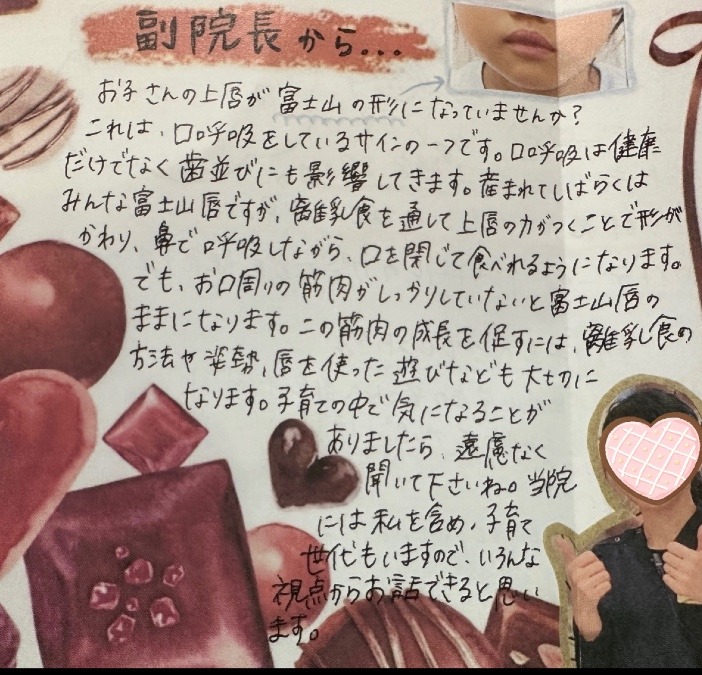 副院長から...
お子さんの上唇が富士山の形になっていませんか?
これは、口呼吸をしているサインの一つです。口呼吸は健康
だけでなく歯並びにも影響してきます。産まれてしばらくは
みんな富士山唇ですが、離乳食を通して上唇の力がつくことで形が
かわり、鼻で呼吸しながら、口を閉じて食べれるようになります。
でも、お口周りの筋肉がしっかりしていないと富士山唇の
ままになります。この筋肉の成長を促すには、離乳食の
方法や姿勢、唇を使った遊びなども大切に
なります。子育ての中で気になることが
ありましたら、遠慮なく
聞いて下さいね。当院
には私を含め、子育て
世代もいますので、いろんな
視点からお話できると思い
ます。